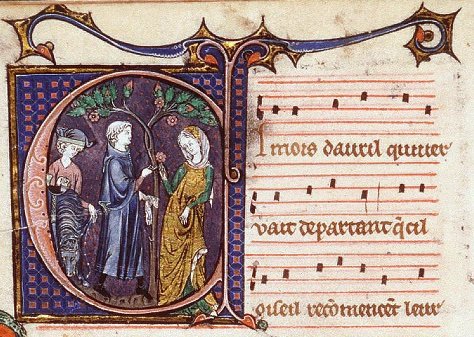 El mois dauril quiuer
vait departant q̃ cil
oiseil recõmencẽt leur